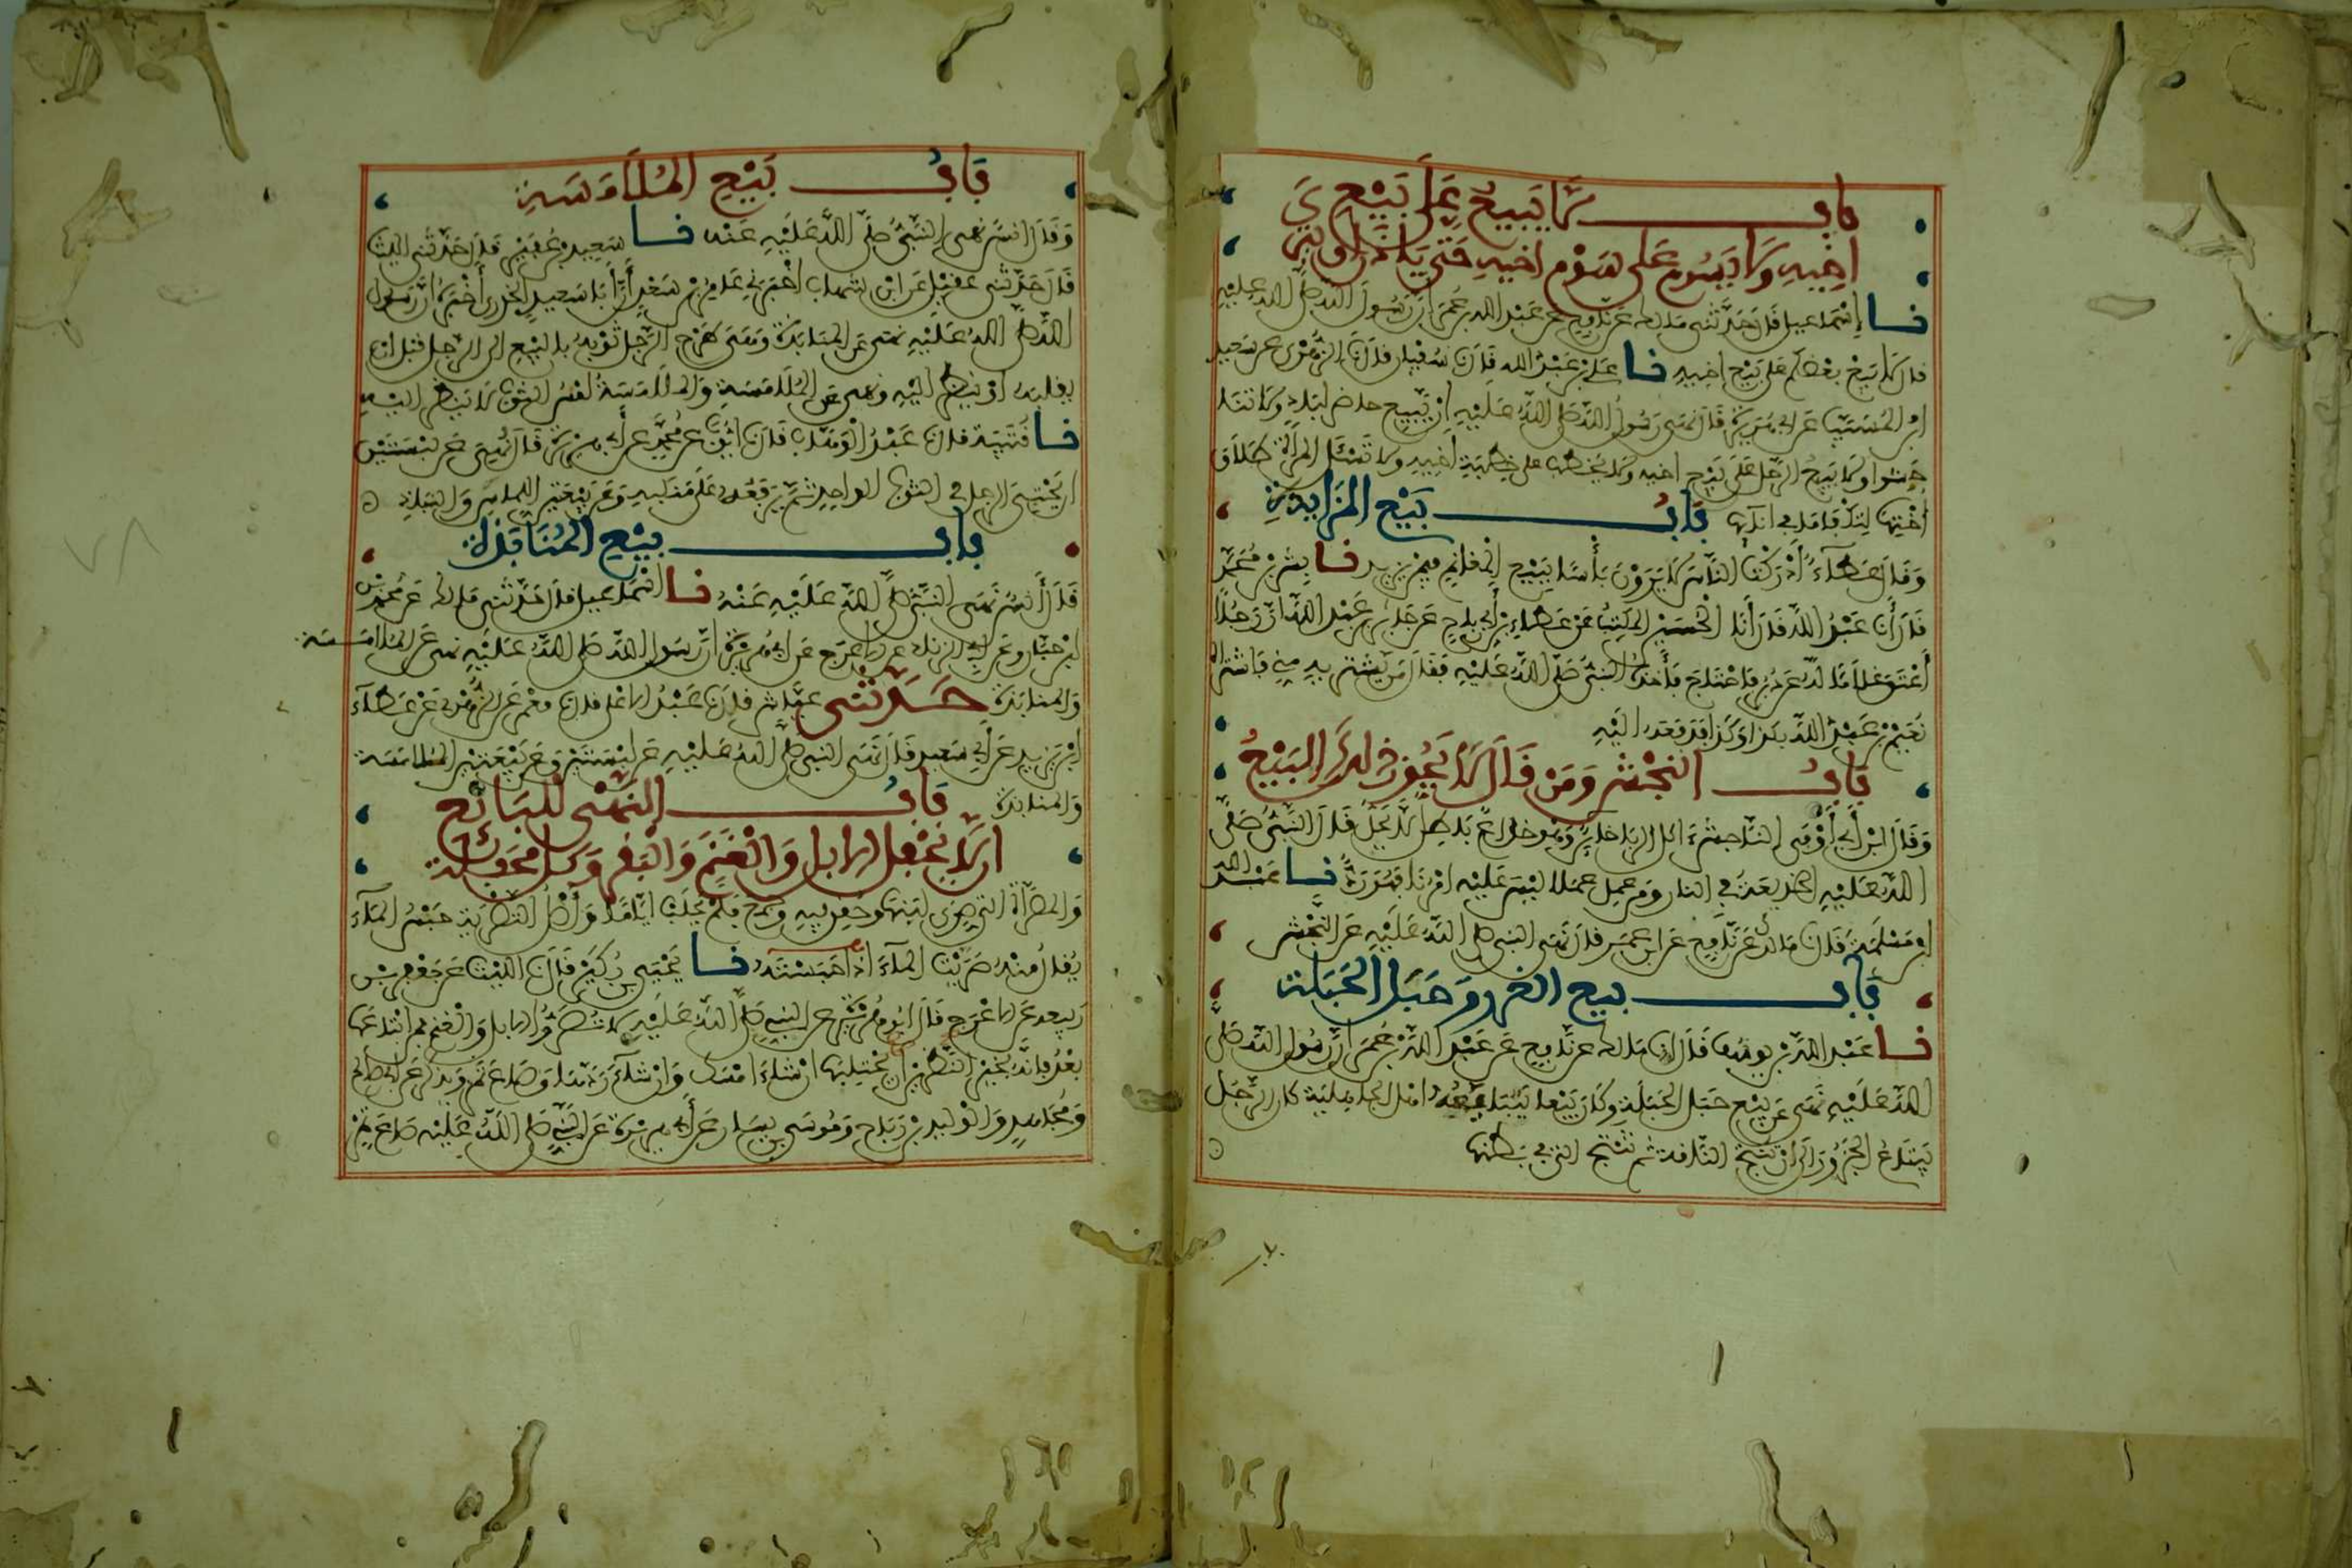 باب لا يبيع على بيع
اخيه ولا يسوم على سوم اخيه حتى ياذن له او يترك
نا إسماعيل قال حدثني مالك عن نافع عن عبد الله بن عمر ان رسول الله صلى الله عليه
قال لا يبيع بعضكم على بيع اخيه نا علي بن عبد الله قال نا سفيان قال نا الزهري عن سعيد
ابن المسيب عن ابي هريرة قال نهى رسول الله صلى الله عليه ان يبيع حاضر لباد ولا تناجشوا
ولا يبيع الرجل على بيع اخيه ولا يخطب على خطبة أخيه ولا تسئل المرأة طلاق
أختها لتكفا ما في انائها باب بيع المزايدة
وقال عطاء أدركت الناس لا يرون بأسا ببيع المغانم فيمن يزيد نا بشر بن محمد
قال أنا عبد الله قال أنا الحسين المكتب عن عطاء بن أبي رباح عن جابر بن عبد الله ان رجلا
أعتق غلاما له عن دبر فاحتاج فأخذه النبي صلى الله عليه فقال من يشتريه مني فاشتراه
نعيم بن عبد الله بكذا وكذا فدفعه اليه
باب النجش ومن قال لا يجوز ذلك البيع
وقال ابن أبي أوفى الناجش ءاكل الربا خائن وهو خداع باطل لا يحل قال النبي صلى
الله عليه الخديعة في النار ومن عمل عملا ليس عليه امرنا فهو رد نا عبد الله
ابن مسلمة قال نا مالك عن نافع عن ابن عمر قال نهى النبي صلى الله عليه عن النجش
باب بيع الغرر وحبل الحبلة
نا عبد الله بن يوسف قال انا مالك عن نافع عن عبد الله بن عمر ان رسول الله صلى
الله عليه نهى عن بيع حبل الحبلة وكان بيعا يتبايعه اهل الجاهلية كان الرجل
يبتاع الجزور الى ان تنتج الناقة ثم تنتج التي في بطنها
باب بيع الملامسة
وقال انس نهى النبي صلى الله عليه عنه نا سعيد بن عفير قال حدثني الليث
قال حدثني عقيل عن ابن شهاب أخبرني عامر بن سعد أن أبا سعيد الخدري أخبره ان رسول
الله صلى الله عليه نهى عن المنابذة وهي طرح الرجل ثوبه بالبيع الى الرجل قبل ان
يقلبه او ينظر اليه ونهى عن الملامسة والملامسة لمس الثوب لا ينظر اليه
نا قتيبة قال نا عبد الوهاب قال نا ايوب عن محمد عن أبي هريرة قال نهي عن لبستين
ان يحتبي الرجل في الثوب الواحد ثم يرفعه على منكبيه وعن بيعتين اللماس والنباذ
باب بيع المنابذة
قال أنس نهى النبي صلى الله عليه عنه نا اسماعيل قال حدثني مالك عن محمد بن
يحيى بن حبان وعن ابي الزناد عن الاعرج عن ابي هريرة ان رسول الله صلى الله عليه نهى عن الملامسة
والمنابذة حدثني عياش قال نا عبد الاعلى قال نا معمر عن الزهري عن عطاء
ابن يزيد عن أبي سعيد قال نهى النبي صلى الله عليه عن لبستين وعن بيعتين الملامسة
والمنابذة باب النهي للبائع
ان لا يحفل الابل والغنم والبقر وكل محفلة
والمصراة التي صري لبنها وحقن فيه وجمع فلم يحلب اياما وأصل التصرية حبس الماء
يقال منه صريت الماء اذا حبسته نا يحيى بن بكير قال نا الليث عن جعفر بن
ربيعة عن الاعرج قال ابو هريرة عن النبي صلى الله عليه لا تصروا الابل والغنم فمن ابتاعها
بعد فانه بخير النظرين ان يحتلبها ان شاء امسك وان شاء ردها وصاع تمر ويذكر عن ابي صالح
ومجاهد والوليد بن رباح وموسى بن يسار عن أبي هريرة عن النبي صلى الله عليه صاع تمر